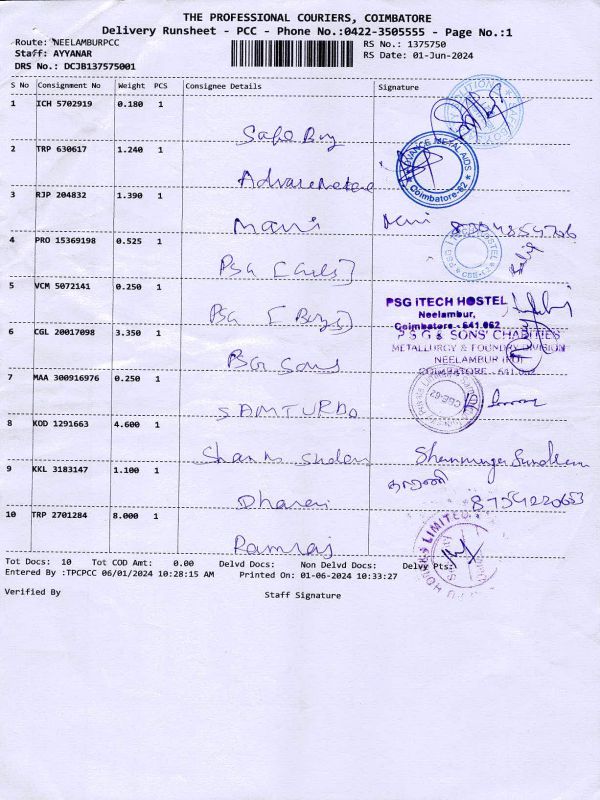 THE PROFESSIONAL COURIERS, COIMBATORE
Delivery Runsheet - PCC - Phone No.:0422-3505555 - Page No.:1
Route: NEELAMBURPCC
RS No.: 1375750
Staff: AYYANAR
RS Date: 01-Jun-2024
DRS No.: DCJB137575001
S No Consignment No Weight PCS Consignee Details Signature
1 ICH 5702919 0.180 1
2 TRP 630617 1.240 1
ADVANCE METAL AIDS
Coimbatore-62
3 RJP 204832 1.390 1
Mani
4 PRO 15369198 0.525 1
PSG [Girls]
PSG HOSTEL
CBE-62
5 VCM 5072141 0.250 1
PSG [Boys]
PSG iTECH HOSTEL
Neelambur,
Coimbatore - 641 062
6 CGL 20017098 3.350 1
PSG Sons
P S G & SONS' CHARITIES
METALLURGY & FOUNDRY DIVISION
NEELAMBUR (PO)
COIMBATORE - 641 062
7 MAA 300916976 0.250 1
SAMTURBO
CBE-62
8 KOD 1291663 4.600 1
Shanmuga Sundaram
9 KKL 3183147 1.100 1
Dharani
தாரணி
8754220653
10 TRP 2701284 8.000 1
Ramraj
LIMITED
Tot Docs: 10 Tot COD Amt: 0.00 Delvd Docs: Non Delvd Docs: Delvy Pts:
Entered By :TPCPCC 06/01/2024 10:28:15 AM Printed On: 01-06-2024 10:33:27
Verified By
Staff Signature